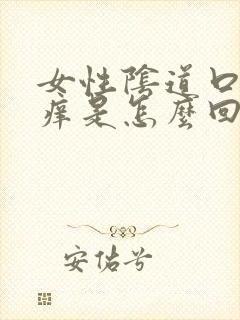 女性陰道口
痒是怎麼回
安估兮